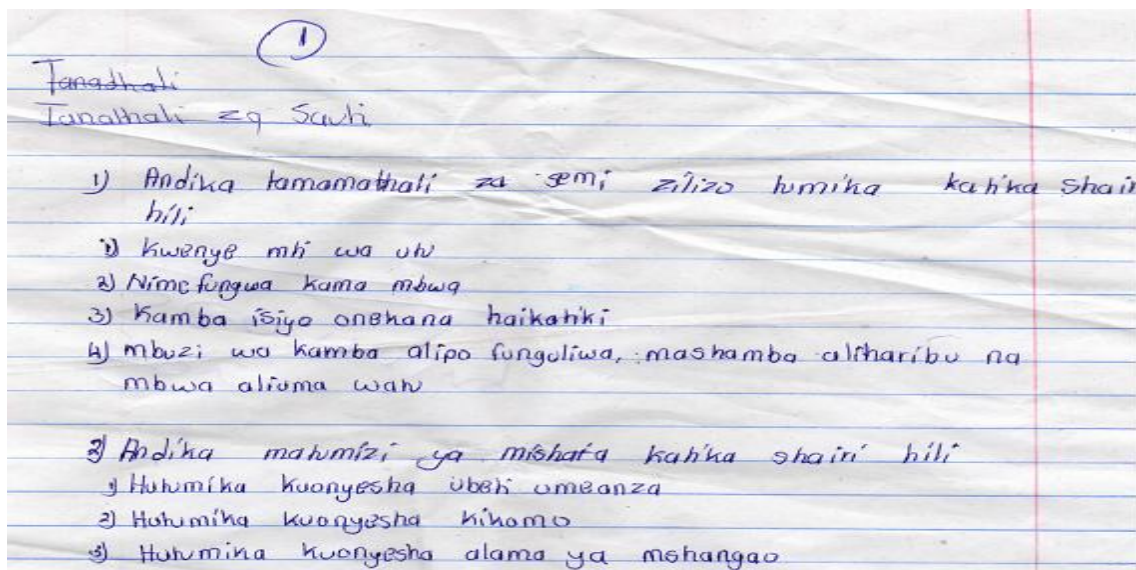 1
Tanadhali
Tanathali za Sauti
1) Andika tamamathali za semi zilizo tumika katika shairi
hili
1) Kwenye mti wa utu
2) Nime fungwa kama mbwa
3) Kamba isiyo onekana haikatiki
4) mbuzi wa kamba alipo funguliwa, mashamba aliharibu na
mbwa aliuma watu
2) Andika matumizi ya mishata katika shairi hili
1) Hutumika kuonyesha ubeti umeanza
2) Hutumika kuonyesha kikomo
3) Hutumika kuonyesha alama ya mshangao